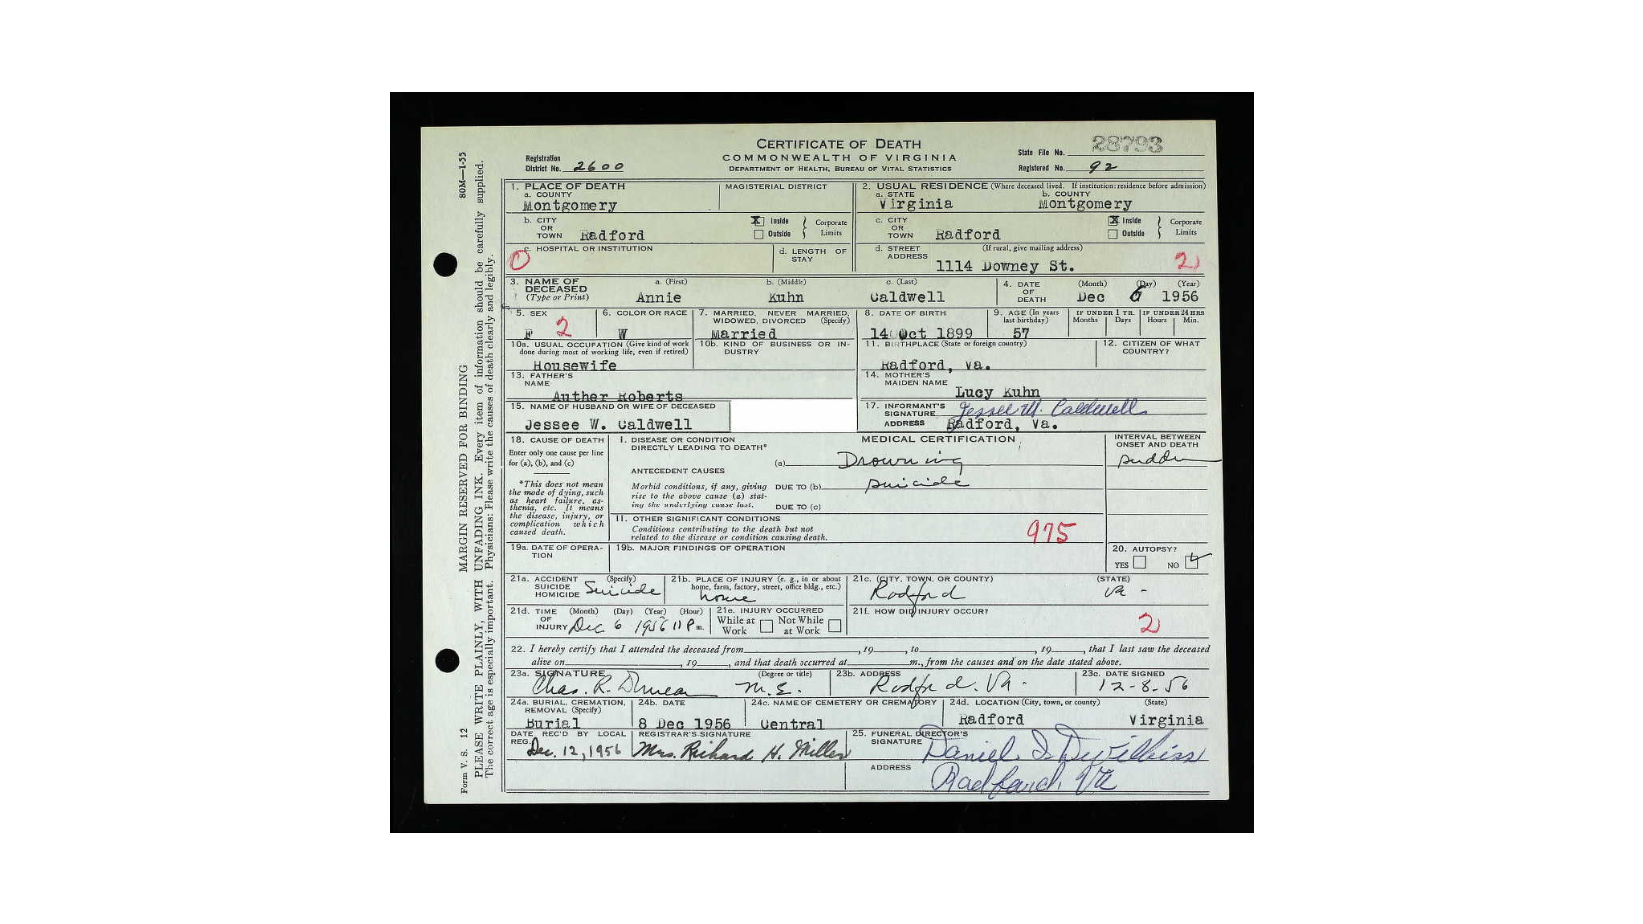 CERTIFICATE OF DEATH
COMMONWEALTH OF VIRGINIA
DEPARTMENT OF HEALTH, BUREAU OF VITAL STATISTICS
Registration District No. 2600
State File No. 28793
Registered No. 92
80M—1-55
MARGIN RESERVED FOR BINDING
PLEASE WRITE PLAINLY, WITH UNFADING INK. Every item of information should be carefully supplied.
The correct age is especially important. Physicians: Please write the causes of death clearly and legibly.
Form V. S. 12
1. PLACE OF DEATH
a. COUNTY
Montgomery
MAGISTERIAL DISTRICT
2. USUAL RESIDENCE (Where deceased lived. If institution: residence before admission)
a. STATE
Virginia
b. COUNTY
Montgomery
b. CITY OR TOWN Radford
X Inside Outside Corporate Limits
c. CITY OR TOWN Radford
X Inside Outside Corporate Limits
c. HOSPITAL OR INSTITUTION
0
d. LENGTH OF STAY
d. STREET ADDRESS (If rural, give mailing address)
1114 Downey St.
2
3. NAME OF DECEASED (Type or Print)
a. (First) b. (Middle) c. (Last)
Annie Kuhn Caldwell
4. DATE OF DEATH (Month) (Day) (Year)
Dec 6 1956
5. SEX
F 2
6. COLOR OR RACE
W
7. MARRIED, NEVER MARRIED, WIDOWED, DIVORCED (Specify)
Married
8. DATE OF BIRTH
14 Oct 1899
9. AGE (In years last birthday)
57
IF UNDER 1 YR. Months Days
IF UNDER 24 HRS Hours Min.
10a. USUAL OCCUPATION (Give kind of work done during most of working life, even if retired)
Housewife
10b. KIND OF BUSINESS OR INDUSTRY
11. BIRTHPLACE (State or foreign country)
Radford, Va.
12. CITIZEN OF WHAT COUNTRY?
13. FATHER'S NAME
Auther Roberts
14. MOTHER'S MAIDEN NAME
Lucy Kuhn
15. NAME OF HUSBAND OR WIFE OF DECEASED
Jessee W. Caldwell
17. INFORMANT'S SIGNATURE Jessee W. Caldwell
ADDRESS Radford, Va.
18. CAUSE OF DEATH
Enter only one cause per line for (a), (b), and (c)
*This does not mean the mode of dying, such as heart failure, asthenia, etc. It means the disease, injury, or complication which caused death.
MEDICAL CERTIFICATION
I. DISEASE OR CONDITION DIRECTLY LEADING TO DEATH*
(a) Drowning
ANTECEDENT CAUSES
Morbid conditions, if any, giving rise to the above cause (a) stating the underlying cause last.
DUE TO (b) suicide
DUE TO (c)
INTERVAL BETWEEN ONSET AND DEATH
sudden
II. OTHER SIGNIFICANT CONDITIONS
Conditions contributing to the death but not related to the disease or condition causing death.
975
19a. DATE OF OPERATION
19b. MAJOR FINDINGS OF OPERATION
20. AUTOPSY?
YES NO
21a. ACCIDENT SUICIDE HOMICIDE (Specify)
Suicide
21b. PLACE OF INJURY (e. g., in or about home, farm, factory, street, office bldg., etc.)
home
21c. (CITY, TOWN, OR COUNTY) (STATE)
Radford Va -
21d. TIME OF INJURY (Month) (Day) (Year) (Hour)
Dec 6 1956 11 P m.
21e. INJURY OCCURRED
While at Work Not While at Work
21f. HOW DID INJURY OCCUR?
2
22. I hereby certify that I attended the deceased from , 19 , to , 19 , that I last saw the deceased
alive on , 19 , and that death occurred at m., from the causes and on the date stated above.
23a. SIGNATURE (Degree or title)
Chas. R. Duncan M.E.
23b. ADDRESS
Radford, Va -
23c. DATE SIGNED
12-8-56
24a. BURIAL, CREMATION, REMOVAL (Specify)
Burial
24b. DATE
8 Dec 1956
24c. NAME OF CEMETERY OR CREMATORY
Central
24d. LOCATION (City, town, or county) (State)
Radford Virginia
DATE REC'D BY LOCAL REG.
Dec. 12, 1956
REGISTRAR'S SIGNATURE
Mrs. Richard H. Miller
25. FUNERAL DIRECTOR'S SIGNATURE
Daniel
ADDRESS
Radford, Va